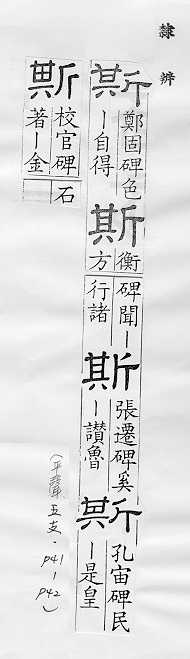 隸辨
斯
鄭固碑色
—自得
斯
衡
方
碑聞—
行諸
斯
張遷碑奚
—讚魯
斯
孔宙碑民
—是皇
斯
校官碑
著—金
石
(平聲五支·P41-P42)